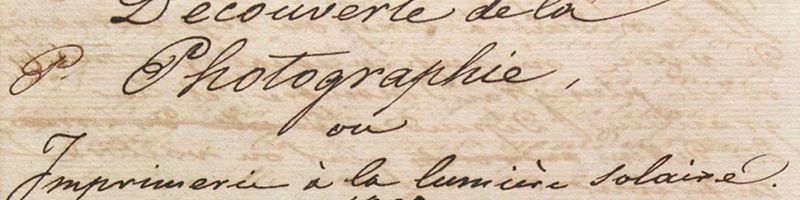 Découverte de la
P. Photographie,
ou
Imprimerie à la lumière solaire.